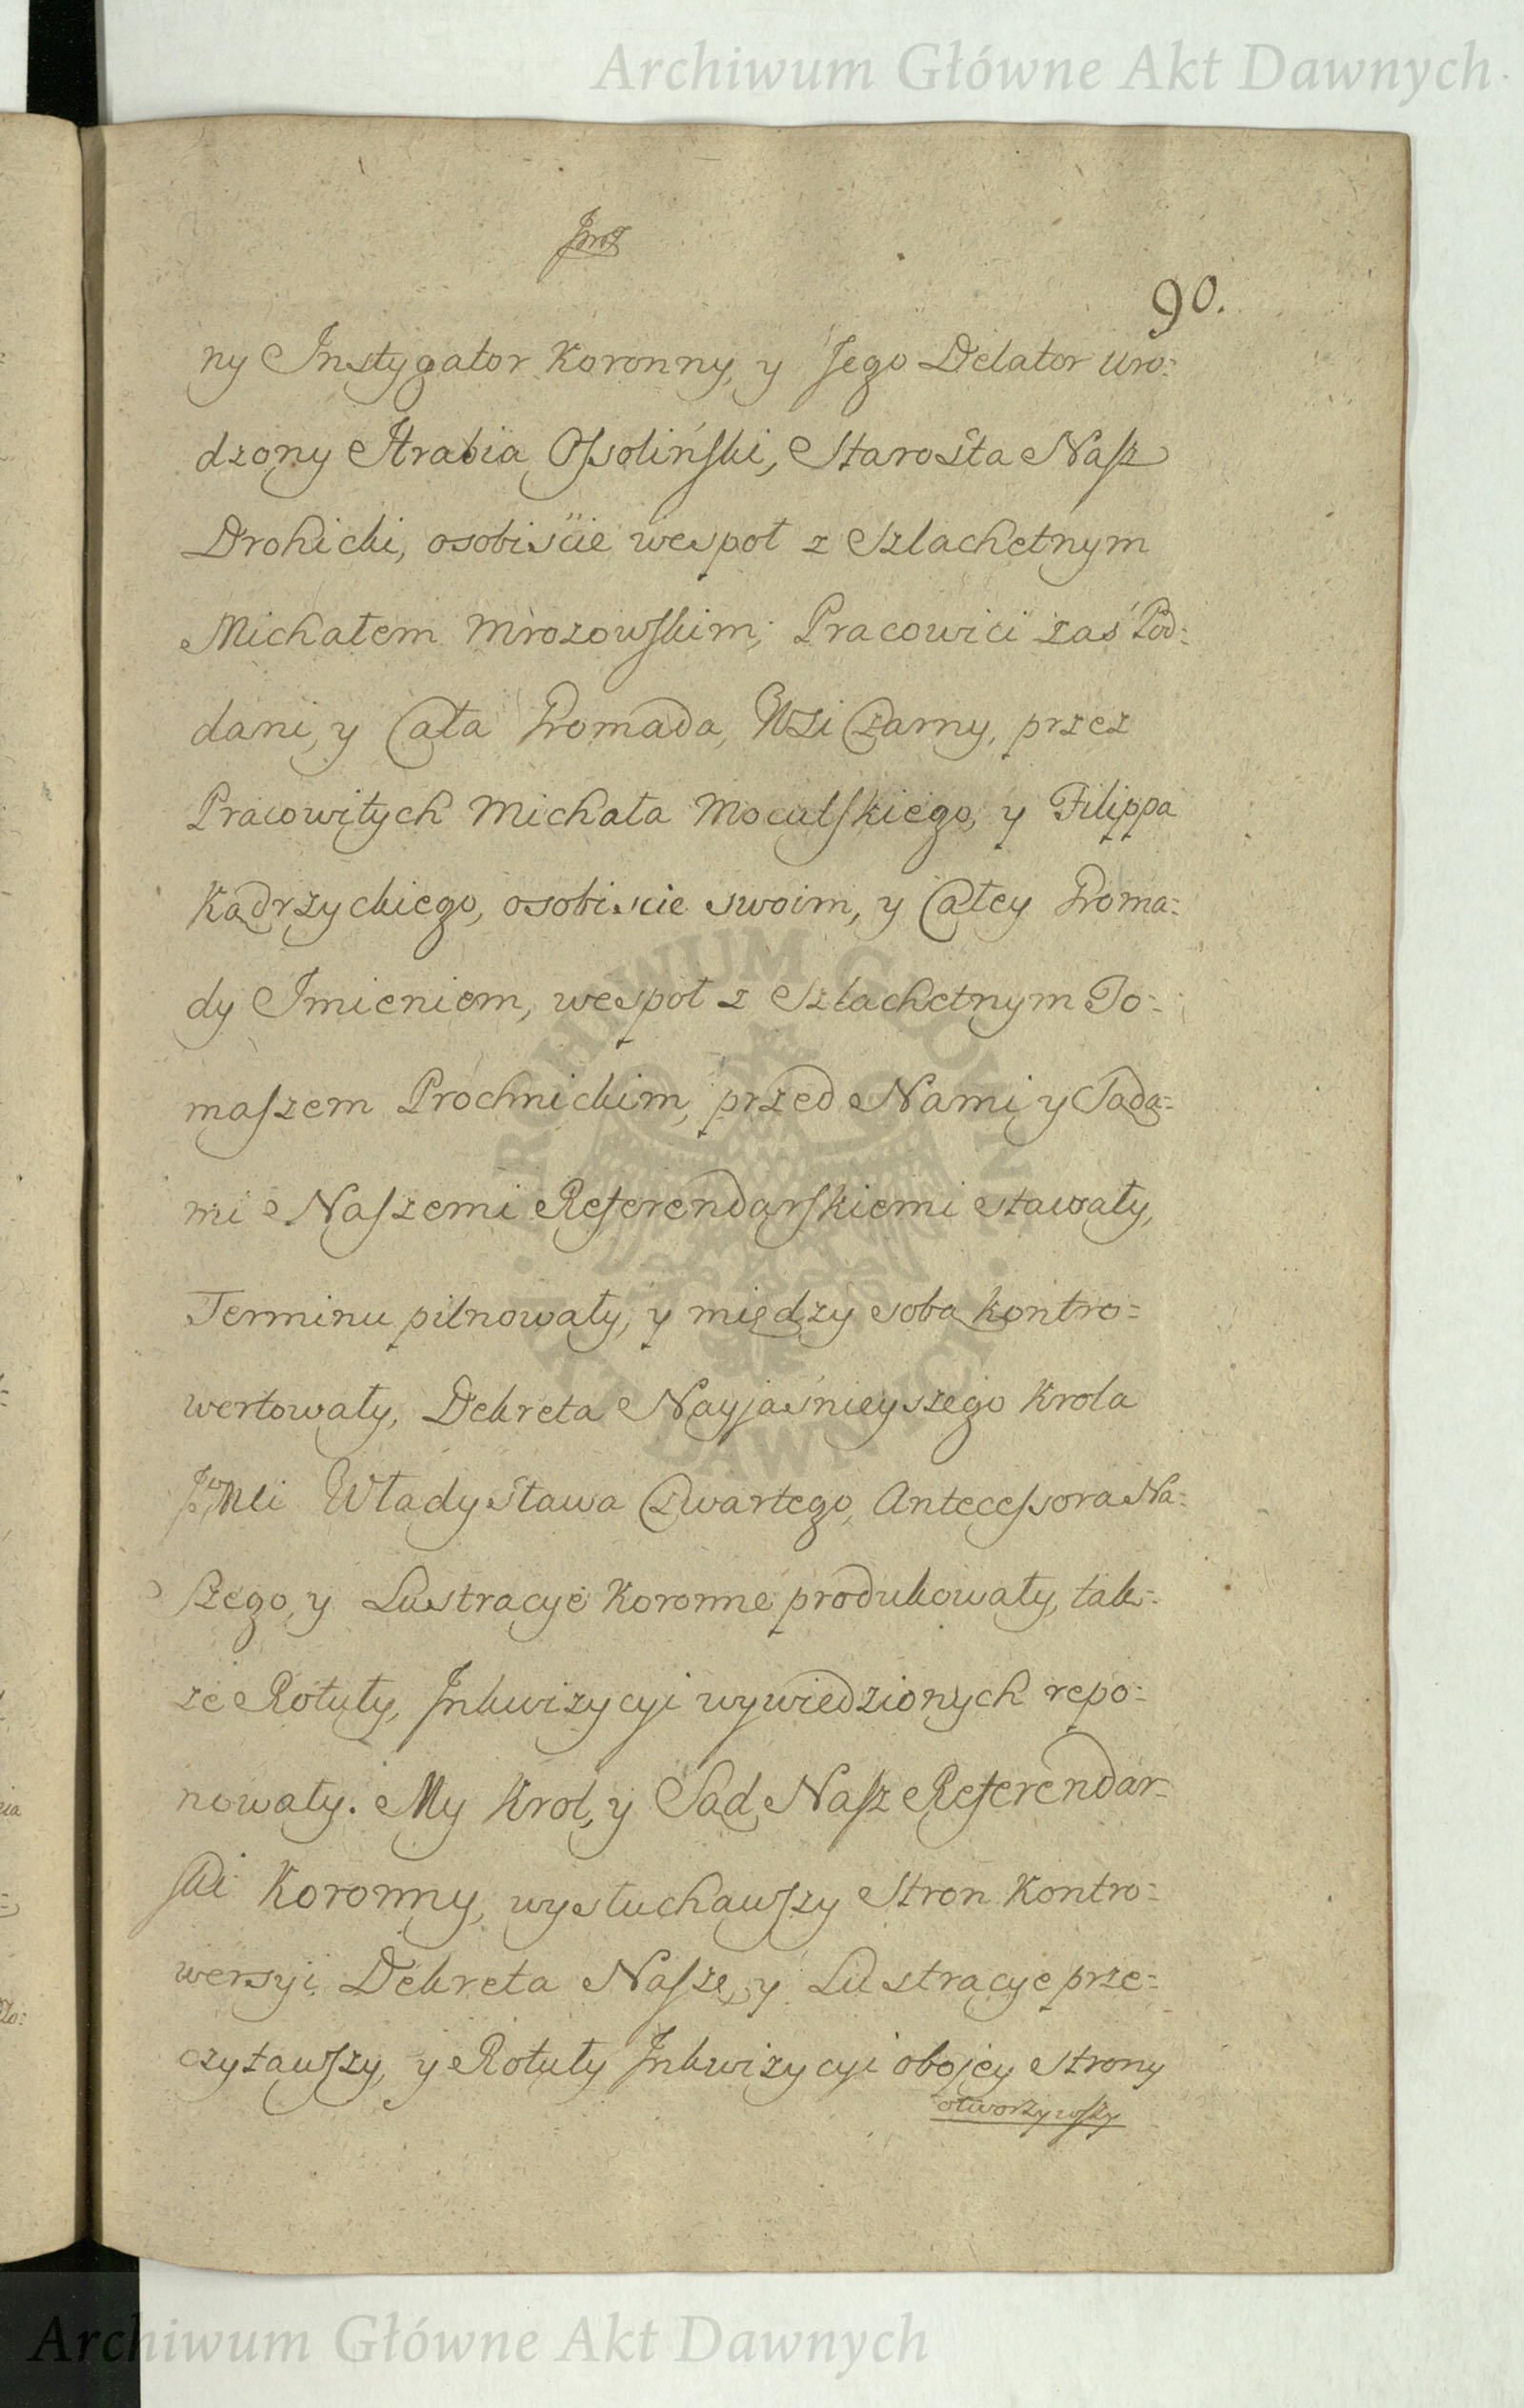 Archiwum Główne Akt Dawnych
90.
ny Instygator Koronny, y Jego Delator Uro:
dzony Hrabia Ossoliński, Starosta Nasz
Drohicki, osobiście wespoł z Szlachetnym
Michałem Mrozowskim; Pracowici zaś Pod:
dani, y Cała Gromada, Wsi Czarny, przez
Pracowitych Michała Moculskiego, y Filippa
Kądrzyckiego, osobiscie swoim, y Całey Groma:
dy Imieniem, wespoł z Szlachetnym To:
maszem Prochnickim, przed Nami y Sąda:
mi Naszemi Referendarskiemi stawały,
Terminu pilnowały, y między sobą kontro:
wertowały, Dekreta Nayjaśnieyszego Krola
Jmci Władysława Czwartego, Antecessora Na:
szego, y Lustracye Koronne produkowały, tak:
że Rotuły, Inkwizycyi wywiedzionych repo:
nowały. My Krol, y Sąd Nasz Referendar:
ski Koronny, wysłuchawszy Stron Kontro:
wersyi Dekreta Nasze, y Lustracye prze:
czytawszy, y Rotuły Inkwizycyi obojey strony
otworzywszy
ARCHIWUM GŁÓWNE AKT DAWNYCH
Archiwum Główne Akt Dawnych